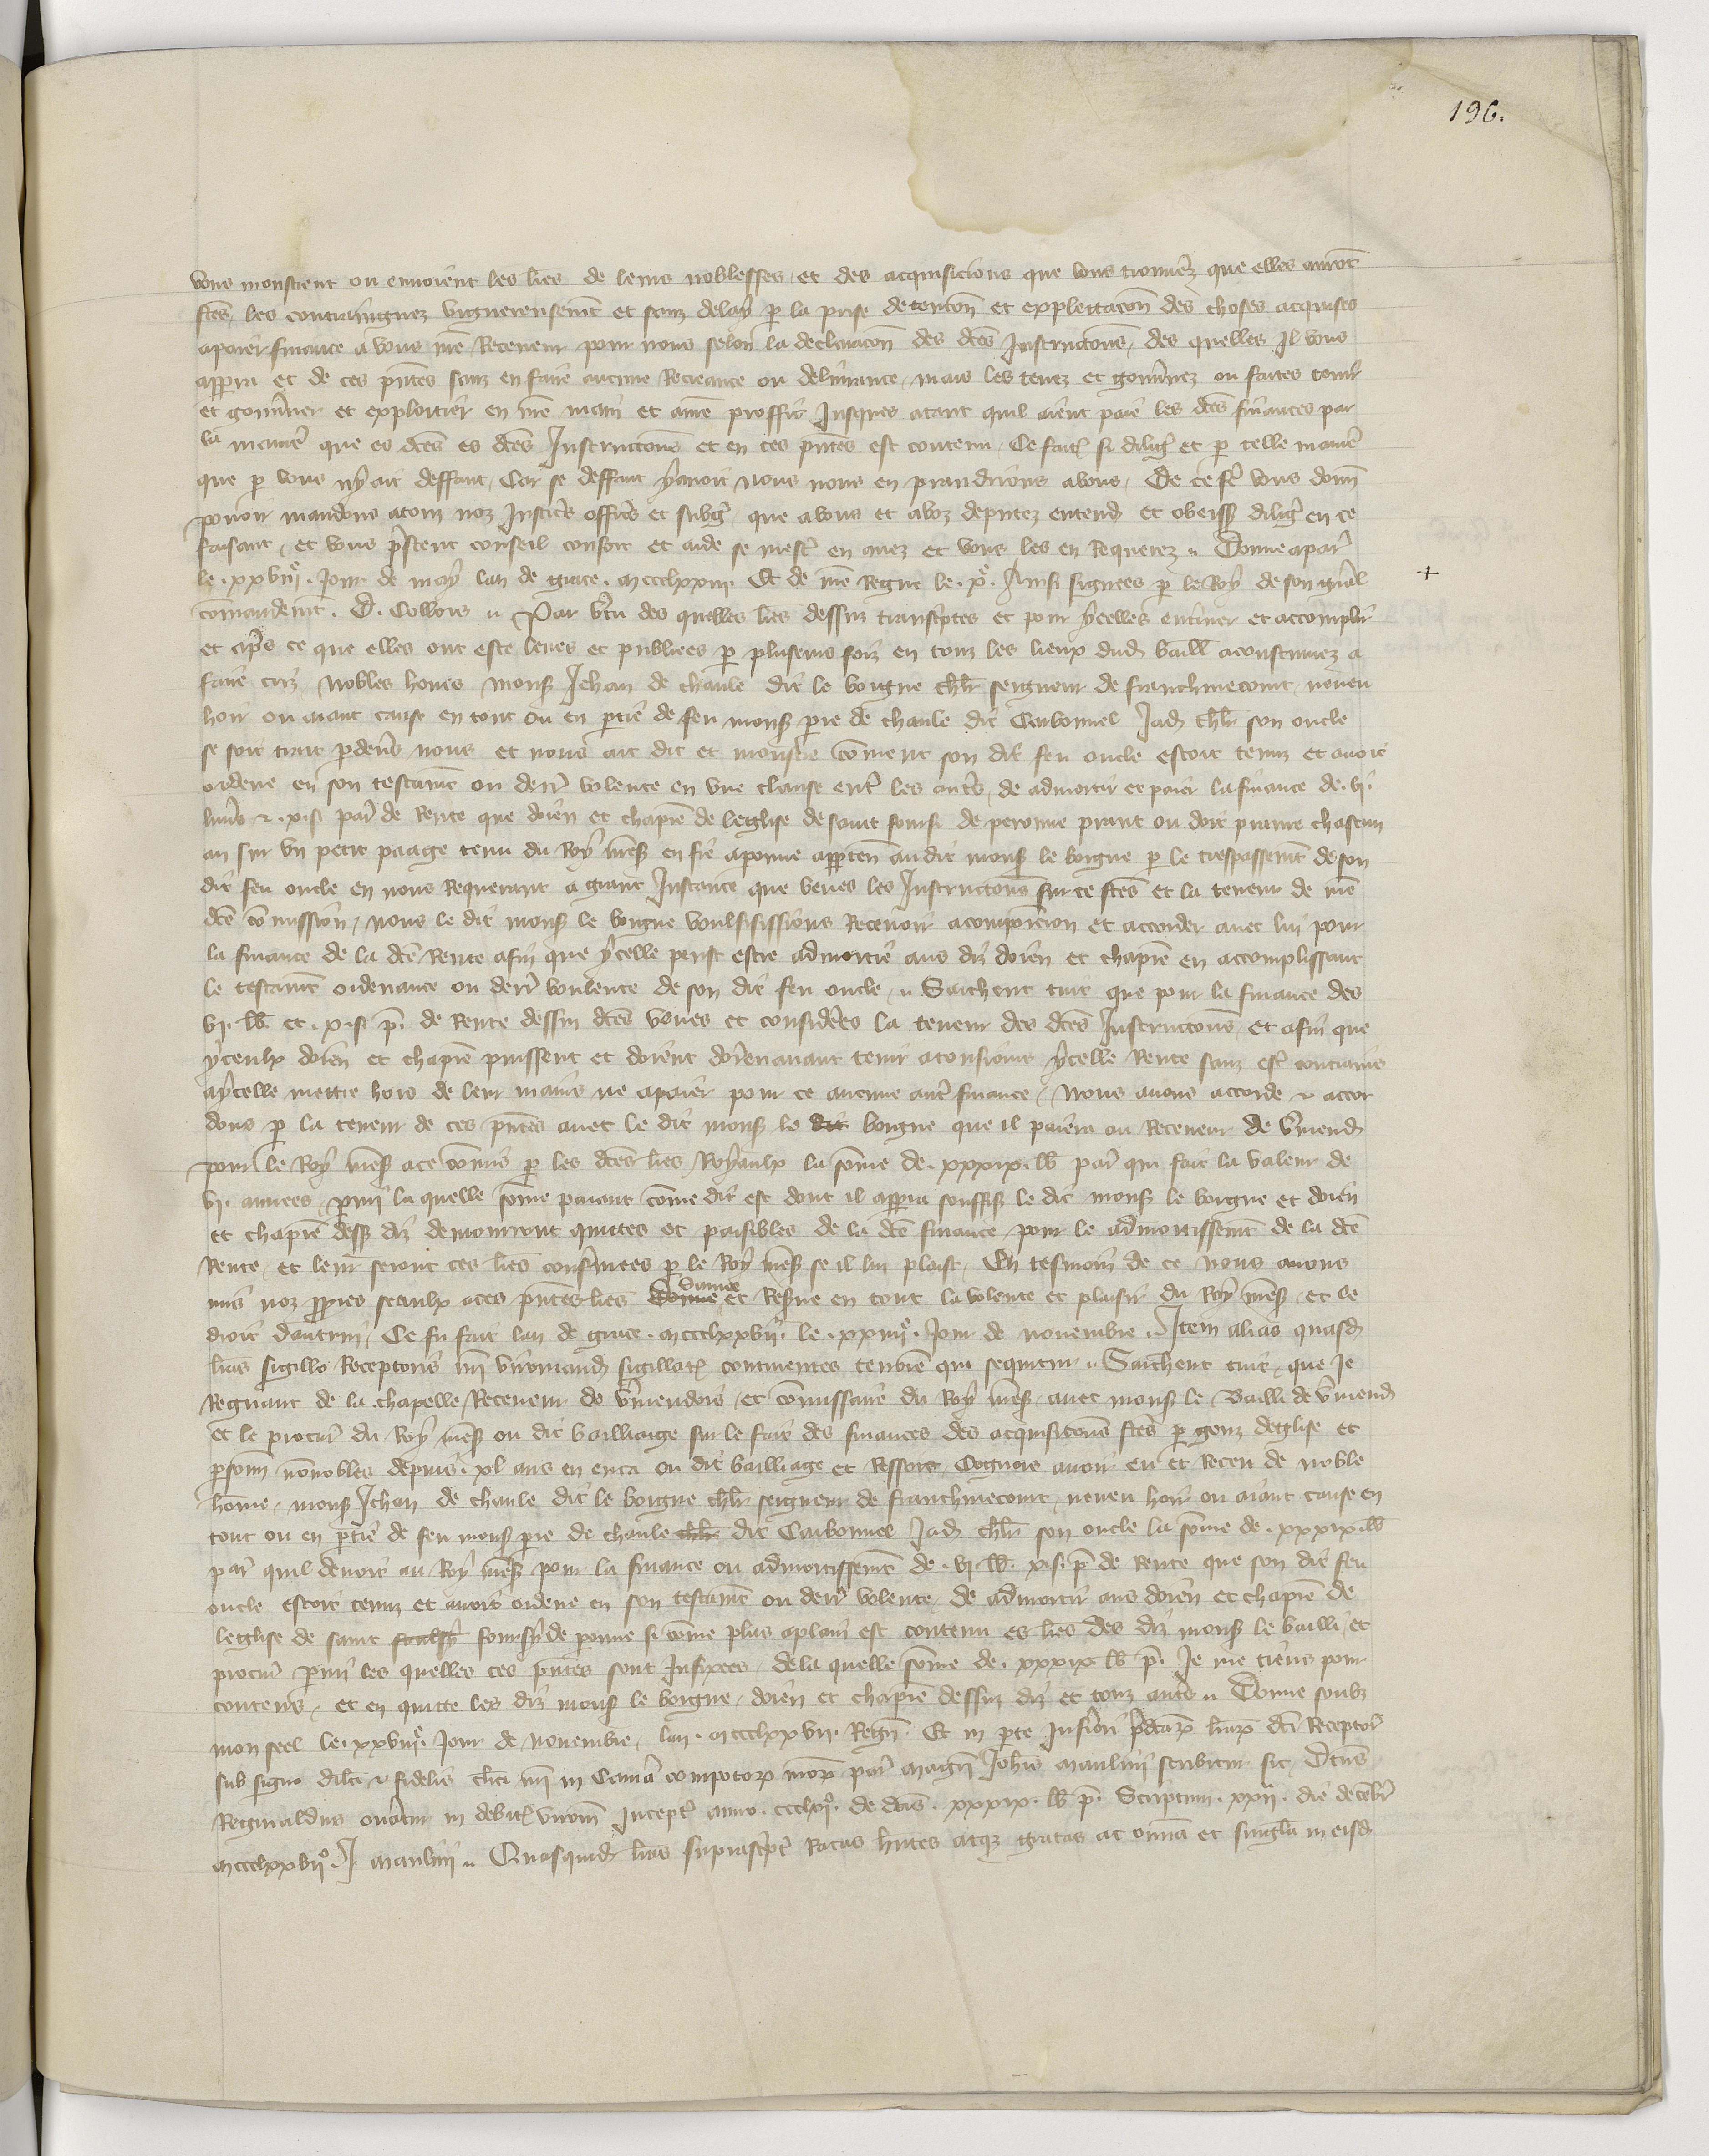 196.
vous monstrent ou envoient les lres de leurs noblesses et des acquisicions que vous trouverez que elles auront
ftes les contraingnez viguereusemt et sanz delay p la prise detencon et explettacon des choses acquises
apaier finance a vous nre Receveur pour nous selon la declaracon des dces Instructions des quelles Il vous
apperra et de ces pntes sanz en faire aucune Recreance ou delivrance mais les tenez et gouvnez ou faites tenir
et gouvner et exploitier en nre main et a nre proffit Jusques atant quil aient paie les dces finances par
la manie que es dces es dces Instructions et en ces pntes est contenu Ce faites si dilig et p telle manie
que p vous ny ait deffaut Car se deffaut yavoit nous nous en prandrions avous De ce fe vous donn
povoir mandons atouz noz Justiciers officiers et subg que avous et avoz deputez entend et obeiss dilig en ce
faisant et vous prestent conseil confort et aide se mest en avez et vous les en Requerez Donne apar
le xxviiie Jour de may lan de grace mccclxxiii Et de nre Regne le xe Ainsi signees p le Roy de son gnal
comandemt D. Collors Par vtu des quelles lres dessus transcptes et pour ycelles enteriner et accomplir
et aps ce que elles ont este leues et publiees p plusieurs foiz en touz les lieux dud baill acoustumez a
faire criz Nobles homes mons Jehan de chaule dit le borgne chlr seigneur de franchmecourt neveu
hoir ou aiant cause en tout ou en ptie de feu mons pre de chaule dit Carbonnel Jad chlr son oncle
se soit trait pdevs nous et nous ait dit et monstre coment son dit feu oncle estoit tenuz et avoit
ordene en son testamt ou deriere volente en une clause entre les autres de admortir et paier la finance de vi
livres et x s par de Rente que doien et chapitre de leglise de saint foursi de peronne prant ou doit prame chascun
an sur un petit paage tenu du Roy nres en fie aponne apptena audit mons le borgne p le trespassemt de son
dit feu oncle en nous Requerant a grant Instance que veues les Instructions sur ce ftes et la teneur de nre
dce comission nous le dit mons le borgne voulsisissions Recevoir acomposicion et accorder avec lui pour
la finance de la dce Rente afin que ycelle peust estre admortie aus diz doien et chapitre en accomplissant
le testamt ordenance ou derr voulente de son dit feu oncle Saichent tuit que pour la finance des
vi lb et x s p de Rente dessus dces veues et considerees la teneur des dces Instructions et afin que
yceulx doien et chapitre puissent et doient dorenavant tenir atousjours ycelle Rente sanz est contrains
aycelle mettre hors de leur mains ne apaier pour ce aucune autre finance Nous avons accorde et accor
dons p la teneur de ces pntes avec le dit mons le dit borgne que il paiera au Receveur de vmend
pour le Roy nres ace comis p les dces lres Royaulx la some de xxxix lb par qui fait la valeur de
vi annees pmi la quelle some paiant come dit est dont il apperra souffis le dit mons le borgne et doien
et chapitre dess diz demourront quittes et paisibles de la dce finance pour le admortissemt de la dce
Rente et leur seront ces lres confermees p le Roy nres se il lui plaist En tesmoin de ce nous avons
mis noz ppres seaulx aces pntes lres Donne sauve et Reserve en tout la volente et plaisir du Roy nres et le
droit dautrui Ce fu fait lan de grace mccclxxvii le xxiiiie Jour de novembre Item alias quasd
lras sigillo Receptoris nri viromand sigillat continentes tenore qui sequitur Saichent tuit que Je
Regnaut de la chapelle Receveur de vmendois et comissaire du Roy nres avec mons le Bailli de vmend
et le procur du Roy nres ou dit bailliaige sur le fait des finances des acquisicions ftes p genz deglise et
psonnes nonobles depuis xl ans en enca ou dit bailliage et Ressort Cognois avoir eu et Receu de noble
home mons Jehan de chaule dit le borgne chlr seigneur de franchmecourt neveu hoir ou aiant cause en
tout ou en ptie de feu mons pre de chaule chlr dit Carbonnel Jad chlr son oncle la some de xxxix lb
par quil devoit au Roy nres pour la finance ou admortissemt de vi lb x s p de Rente que son dit feu
oncle estoit tenuz et avoit ordene en son testamt ou derr volente de admortir aus doien et chapitre de
leglise de saint foursy de ponne si come plus aplain est contenu es lres des diz mons le bailli et
procur pmi les quelles ces pntes sont Infixees de la quelle some de xxxix lb p Je me tiens pour
contens et en quitte les diz mons le borgne doien et chapitre dessus diz et touz autres Donne soubz
mon seel le xxviiie Jour de novembre lan mccclxxvii Regn Et in pte Inferiori pdcarum lrarum dci Receptor
sub signo dilci et fidelis clici nri in Camera compotorum nrorum par magri Johis maulini scribitur sic Dcus
Reginaldus onatur in debitis virom Incept anno ccclxxiio de dcis xxxix lb p Scriptum xxiia die decebr
mccclxxviio J maulini Quasquid lras suprascpt Ratas hntes atque gratas ac omia et singula in eisd